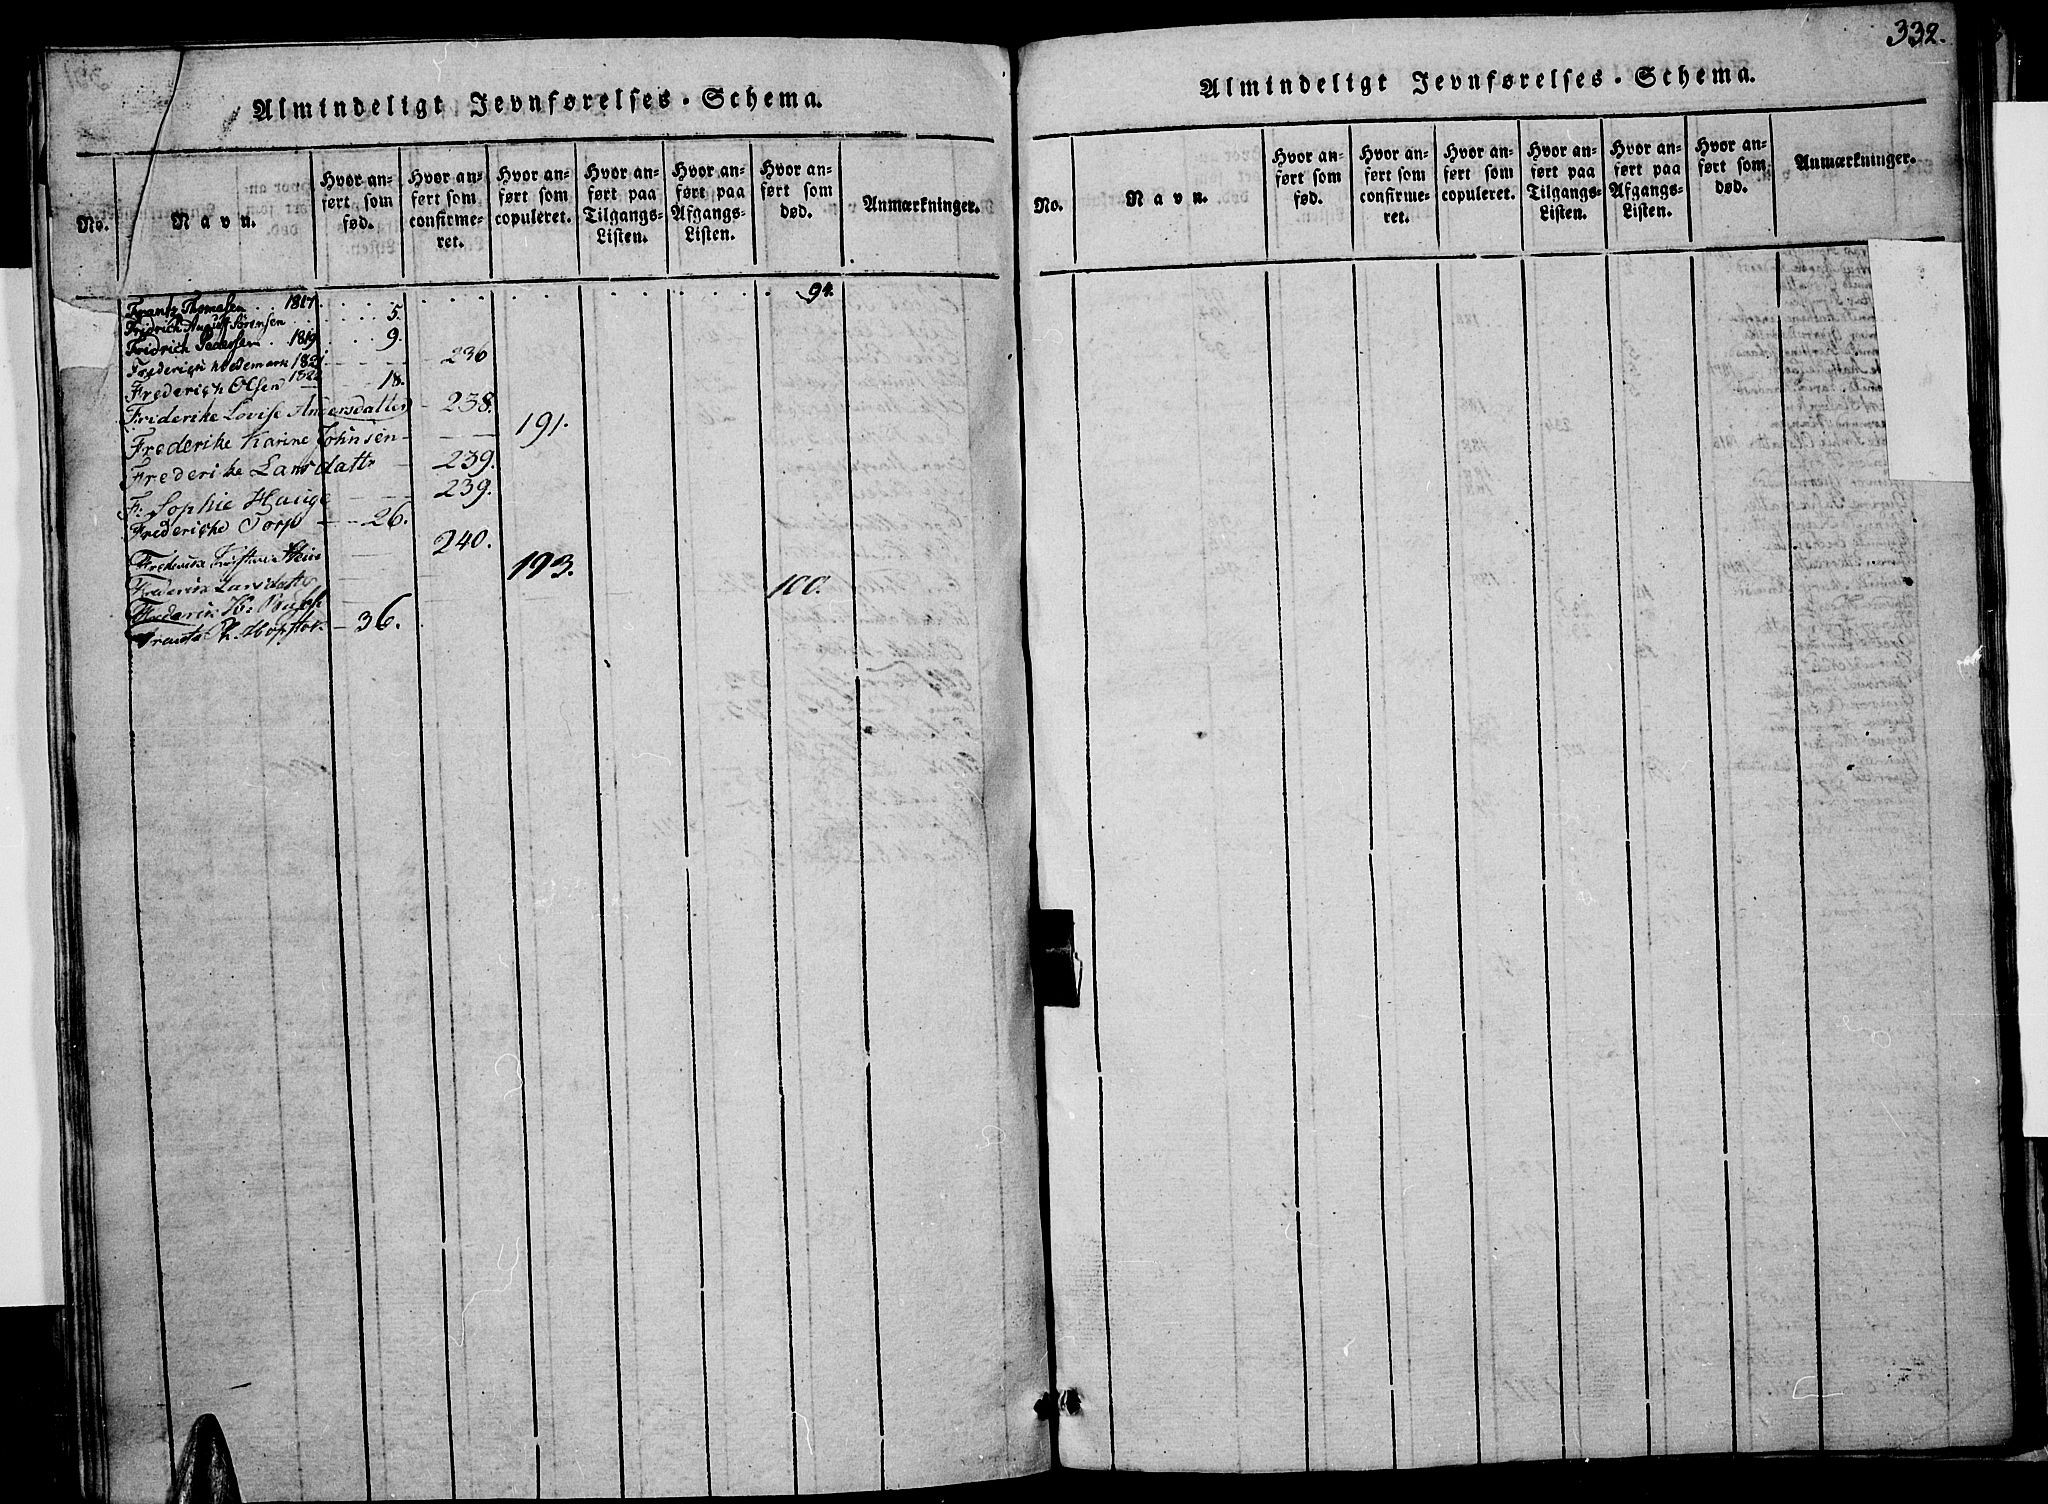 Almindeligt Jevnførelses-Schema.
No.
Navn.
Hvor anført som fød.
Hvor anført som confirmeret.
Hvor anført som copuleret.
Hvor anført paa Tilgangs-Listen.
Hvor anført paa Afgangs-Listen.
Hvor anført som død.
Anmærkninger.
Frantz Thomesen . . 1817. . . . . . . . . . . . . . . 94.
Fridrich August Sørensen . . . . 5.
Fridrich Pedersen . 1819. . . . 9.
Frederich Wedemark 1821 — — 236
Frederich Olsen 1822 — 18.
Friderike Lovise Andersdatter — 238.
Frederike Karine Johnsen — — 191.
Frederike Larsdattr — 239.
F: Sophie Hauge — — 239.
Frederische Torp — — 26.
Frederikke Stein — — 240.
Frederik Larsdattr — — 193.
Frederik H: — — 100.
Ph. — 36.
332.
Almindeligt Jevnførelses-Schema.
No.
Navn.
Hvor anført som fød.
Hvor anført som confirmeret.
Hvor anført som copuleret.
Hvor anført paa Tilgangs-Listen.
Hvor anført paa Afgangs-Listen.
Hvor anført som død.
Anmærkninger.